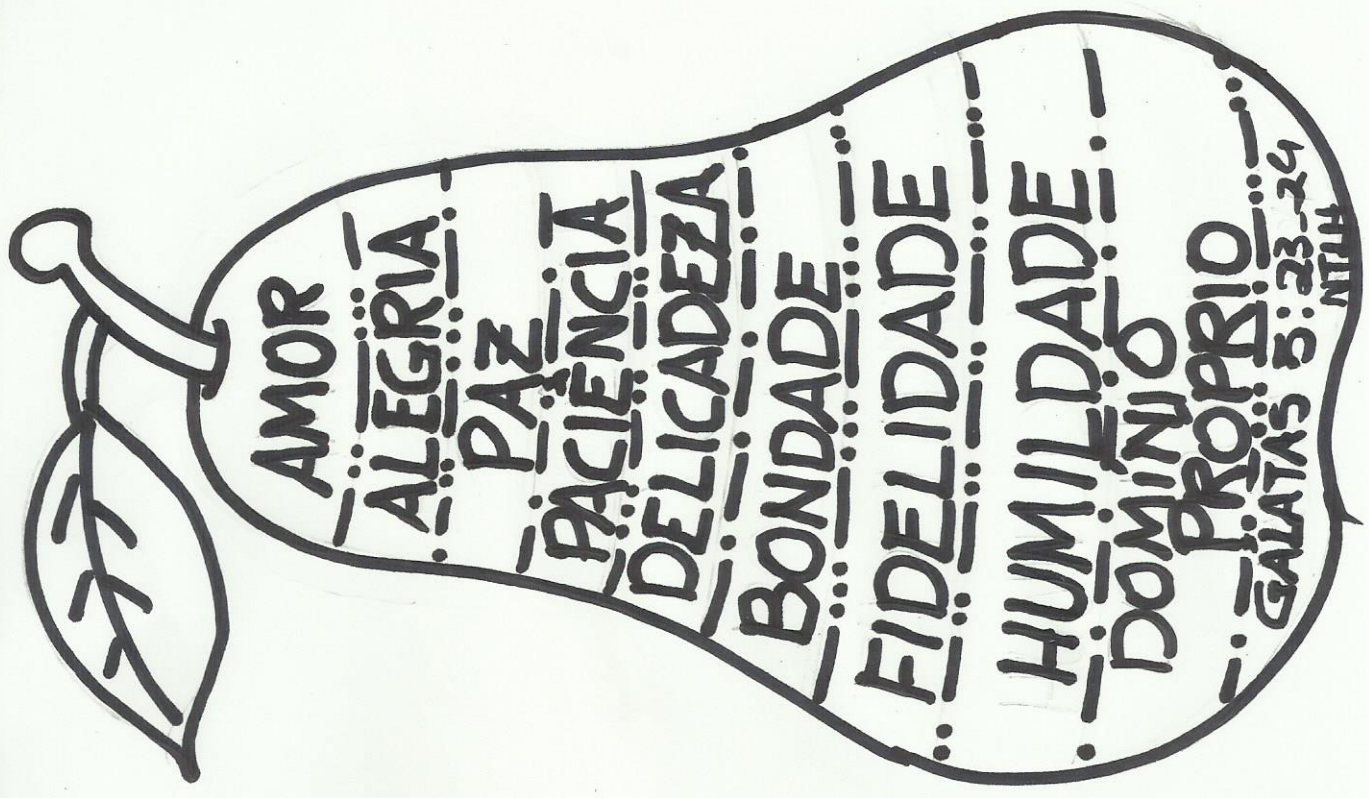 AMOR
ALEGRIA
PAZ
PACIENCIA
DELICADEZA
BONDADE
FIDELIDADE
HUMILDADE
DOMINIO
PROPRIO
GALATAS 5:23-24
NTLH